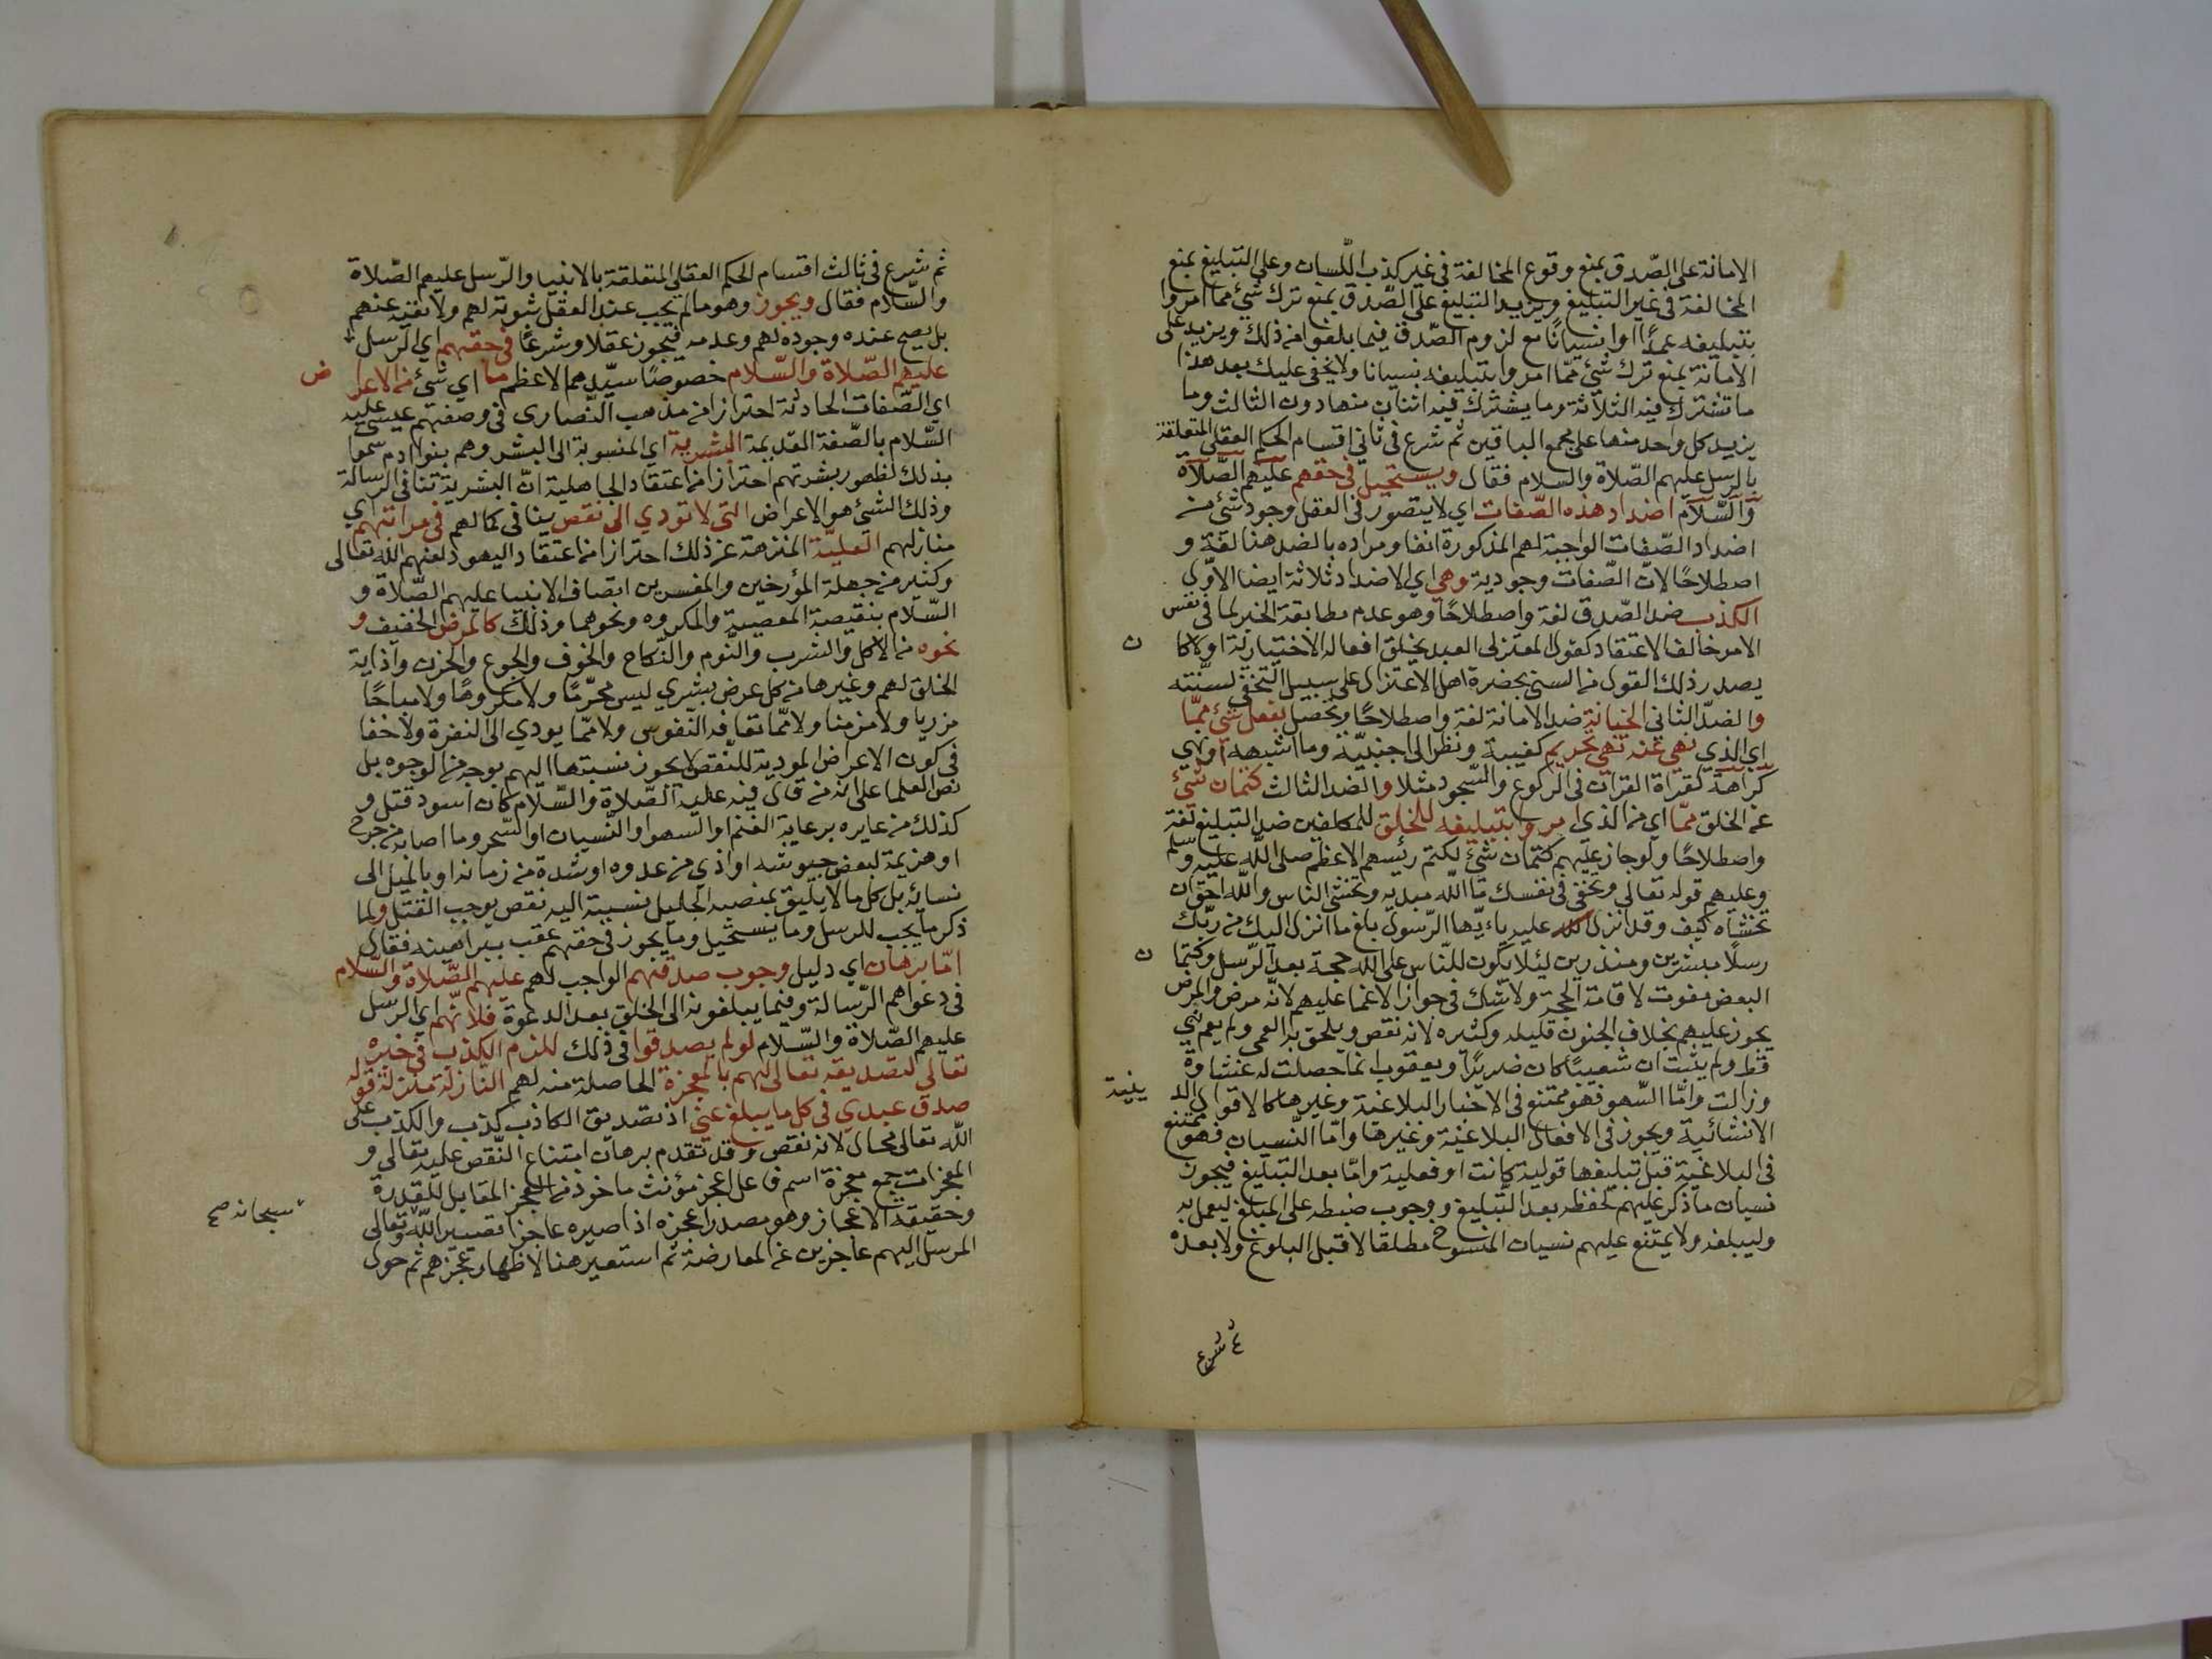 الامانة على الصّدق بمنع وقوع المخالفة في غير كذب اللّسان وعلى التبليغ بمنع
المخالفة في غير التبليغ ويزيد التبليغ على الصّدق بمنع ترك شئ مما امروا
بتبليغه عمدًا او نسيانًا مع لزوم الصّدق فيما بلغوا من ذلك ويزيد على
الامانة بمنع ترك شئ ممّا امروا بتبليغه نسيانا ولا يخفى عليك بعد هذا
ما تشترك فيه الثلاثة وما يشترك فيه اثنان منها دون الثالث وما
يزيد كل واحد منها على مجموع الباقين ثم شرع في ثاني اقسام الحكم العقلي المتعلقة
بالرسل عليهم الصّلاة والسلام فقال ويستحيل في حقهم عليهم الصّلاة
والسّلام اضداد هذه الصّفات اي لا يتصور في العقل وجود شئ من
اضداد الصّفات الواجبة لهم المذكورة انفا ومراده بالضد هنا لغة و
اصطلاحًا لانّ الصّفات وجودية وهي اي الاضداد ثلاثة ايضا الاوّل
الكذب ضد الصّدق لغة واصطلاحًا وهو عدم مطابقة الخبر لما في نفس
الامر خالف الاعتقاد كقول المعتزلي العبد يخلق افعاله الاختيارية او لا كا ن
يصدر ذلك القول من السني بحضرة اهل الاعتزال على سبيل التخفي لسنّته
والضدّ الثاني الخيانة ضد الامانة لغة واصطلاحًا وتحصل بفعل شئ ممّا
اي الذي نهي عنه نهي تحريم كغيبة ونظر الى اجنبيّة وما اشبهه او نهي
كراهة كقراة القران في الركوع والسّجود مثلا والضد الثالث كتمان شئ
عن الخلق ممّا اي من الذي امروا بتبليغه للخلق للمكلفين ضد التبليغ لغة
واصطلاحًا ولو جاز عليهم كتمان شئ لكتم رئيسهم الاعظم صلى الله عليه وسلم
وعليهم قوله تعالى وتخفي في نفسك ما الله مبديه وتخشى الناس والله احق ان
تخشاه كيف وقد انزل عليه ياءيّها الرّسول بلغ ما انزل اليك من ربّك
رسلًا مبشرين ومنذرين لئلا يكون للنّاس على الله حجة بعد الرّسل وكتما ن
البعض مفوت لاقامة الحجة ولا شك في جواز الاغما عليهم لانّه مرض والمرض
يجوز عليهم بخلاف الجنون قليله وكثيره لانه نقص ويلحق به العمى ولم يعم نبي
قط ولم يثبت ان شعيبًا كان ضريرًا ويعقوب انما حصلت له غشاوة
وزالت وامّا السّهو فهو ممتنع في الاخبار البلاغية وغيرها كالاقوال الد ينية
الانشائية ويجوز في الافعال البلاغيّة وغيرها وامّا النّسيان فهو ممتنع
في البلاغية قبل تبليغها قولية كانت او فعلية وامّا بعد التبليغ فيجوز
نسيان ما ذكر عليهم لحفظه بعد التّبليغ ووجوب ضبطه على المبلّغ ليعمل به
وليبلغه ولا يمتنع عليهم نسيان المنسوخ مطلقا لا قبل البلوغ ولا بعده
ثم شرع
ثم شرع في ثالث اقسام الحكم العقلي المتعلقة بالانبيا والرّسل عليهم الصّلاة
والسّلام فقال ويجوز وهو ما لم يجب عند العقل ثبوته لهم ولا نفيه عنهم
بل يصح عنده وجوده لهم وعدمه فيجوز عقلا وشرعًا في حقهم اي الرسل
عليهم الصّلاة والسّلام خصوصًا سيّدهم الاعظم ما اي شئ من الاعرا ض
اي الصّفات الحادثة احترازا من مذهب النّصارى في وصفهم عيسى عليه
السّلام بالصّفة القديمة البشرية اي المنسوبة الى البشر وهم بنوا ادم سموا
بذلك لظهور بشرتهم احترازا من اعتقاد الجاهلية انّ البشرية تنافي الرسالة
وذلك الشئ هو الاعراض التي لا تودي الى نقص ينافي كمالهم في مراتبهم اي
منازلهم العليّة المنزهة عن ذلك احترازا من اعتقاد اليهود لعنهم الله تعالى
وكثير من جهلة المؤرخين والمفسرين اتصاف الانبيا عليهم الصّلاة و
السّلام بنقيصة المعصية والمكروه ونحوهما وذلك كالمرض الخفيف و
نحوه من الاكل والشرب والنّوم والنّكاح والخوف والجوع والحزن واذاية
الخلق لهم وغيرها من كل عرض بشري ليس محرّمًا ولا مكروهًا ولا مباحًا
مزريا ولا مزمنا ولا ممّا تعافه النّفوس ولا ممّا يودي الى النفرة ولا خفا
في كون الاعراض المودية للنّقص لا يجوز نسبتها اليهم بوجه من الوجوه بل
نص العلما على انه من قال فيه عليه الصّلاة والسّلام كان اسود قتل و
كذلك من عايره برعاية الغنم او السهو او النّسيان او السّحر وما اصابه من جرح
او هزيمة لبعض جيوشه او اذي من عدوه او شدة من زمانه او بالميل الى
نسائه بل كل ما لا يليق بمنصبه الجليل نسبته اليه نقص يوجب القتل ولما
ذكر ما يجب للرسل وما يستحيل وما يجوز في حقهم عقب ببراهينه فقال
امّا برهان اي دليل وجوب صدقهم الواجب لهم عليهم الصّلاة والسّلام
في دعواهم الرّسالة وفيما يبلغونه الى الخلق بعد الدعوة فلانّهم اي الرسل
عليهم الصّلاة والسّلام لو لم يصدقوا في ذلك للزم الكذب في خبره
تعالى لتصديقه تعالى لهم بالمعجزة الحاصلة منه لهم النازلة منزلة قوله
صدق عبدي في كل ما يبلغ عني اذ تصديق الكاذب كذب والكذب على
الله تعالى محال لانه نقص وقد تقدم برهان امتناع النّقص عليه تعالى و
المعجزات جمع معجزة اسم فاعل اعجز مؤنث ماخوذ من العجز المقابل للقدرة
وحقيقة الاعجاز وهو مصدر اعجزه اذا صيره عاجزا تصيير الله وتعالى سبحانه صح
المرسل اليهم عاجزين عن المعارضة ثم استعير هنا لاظهار عجزهم ثم حول